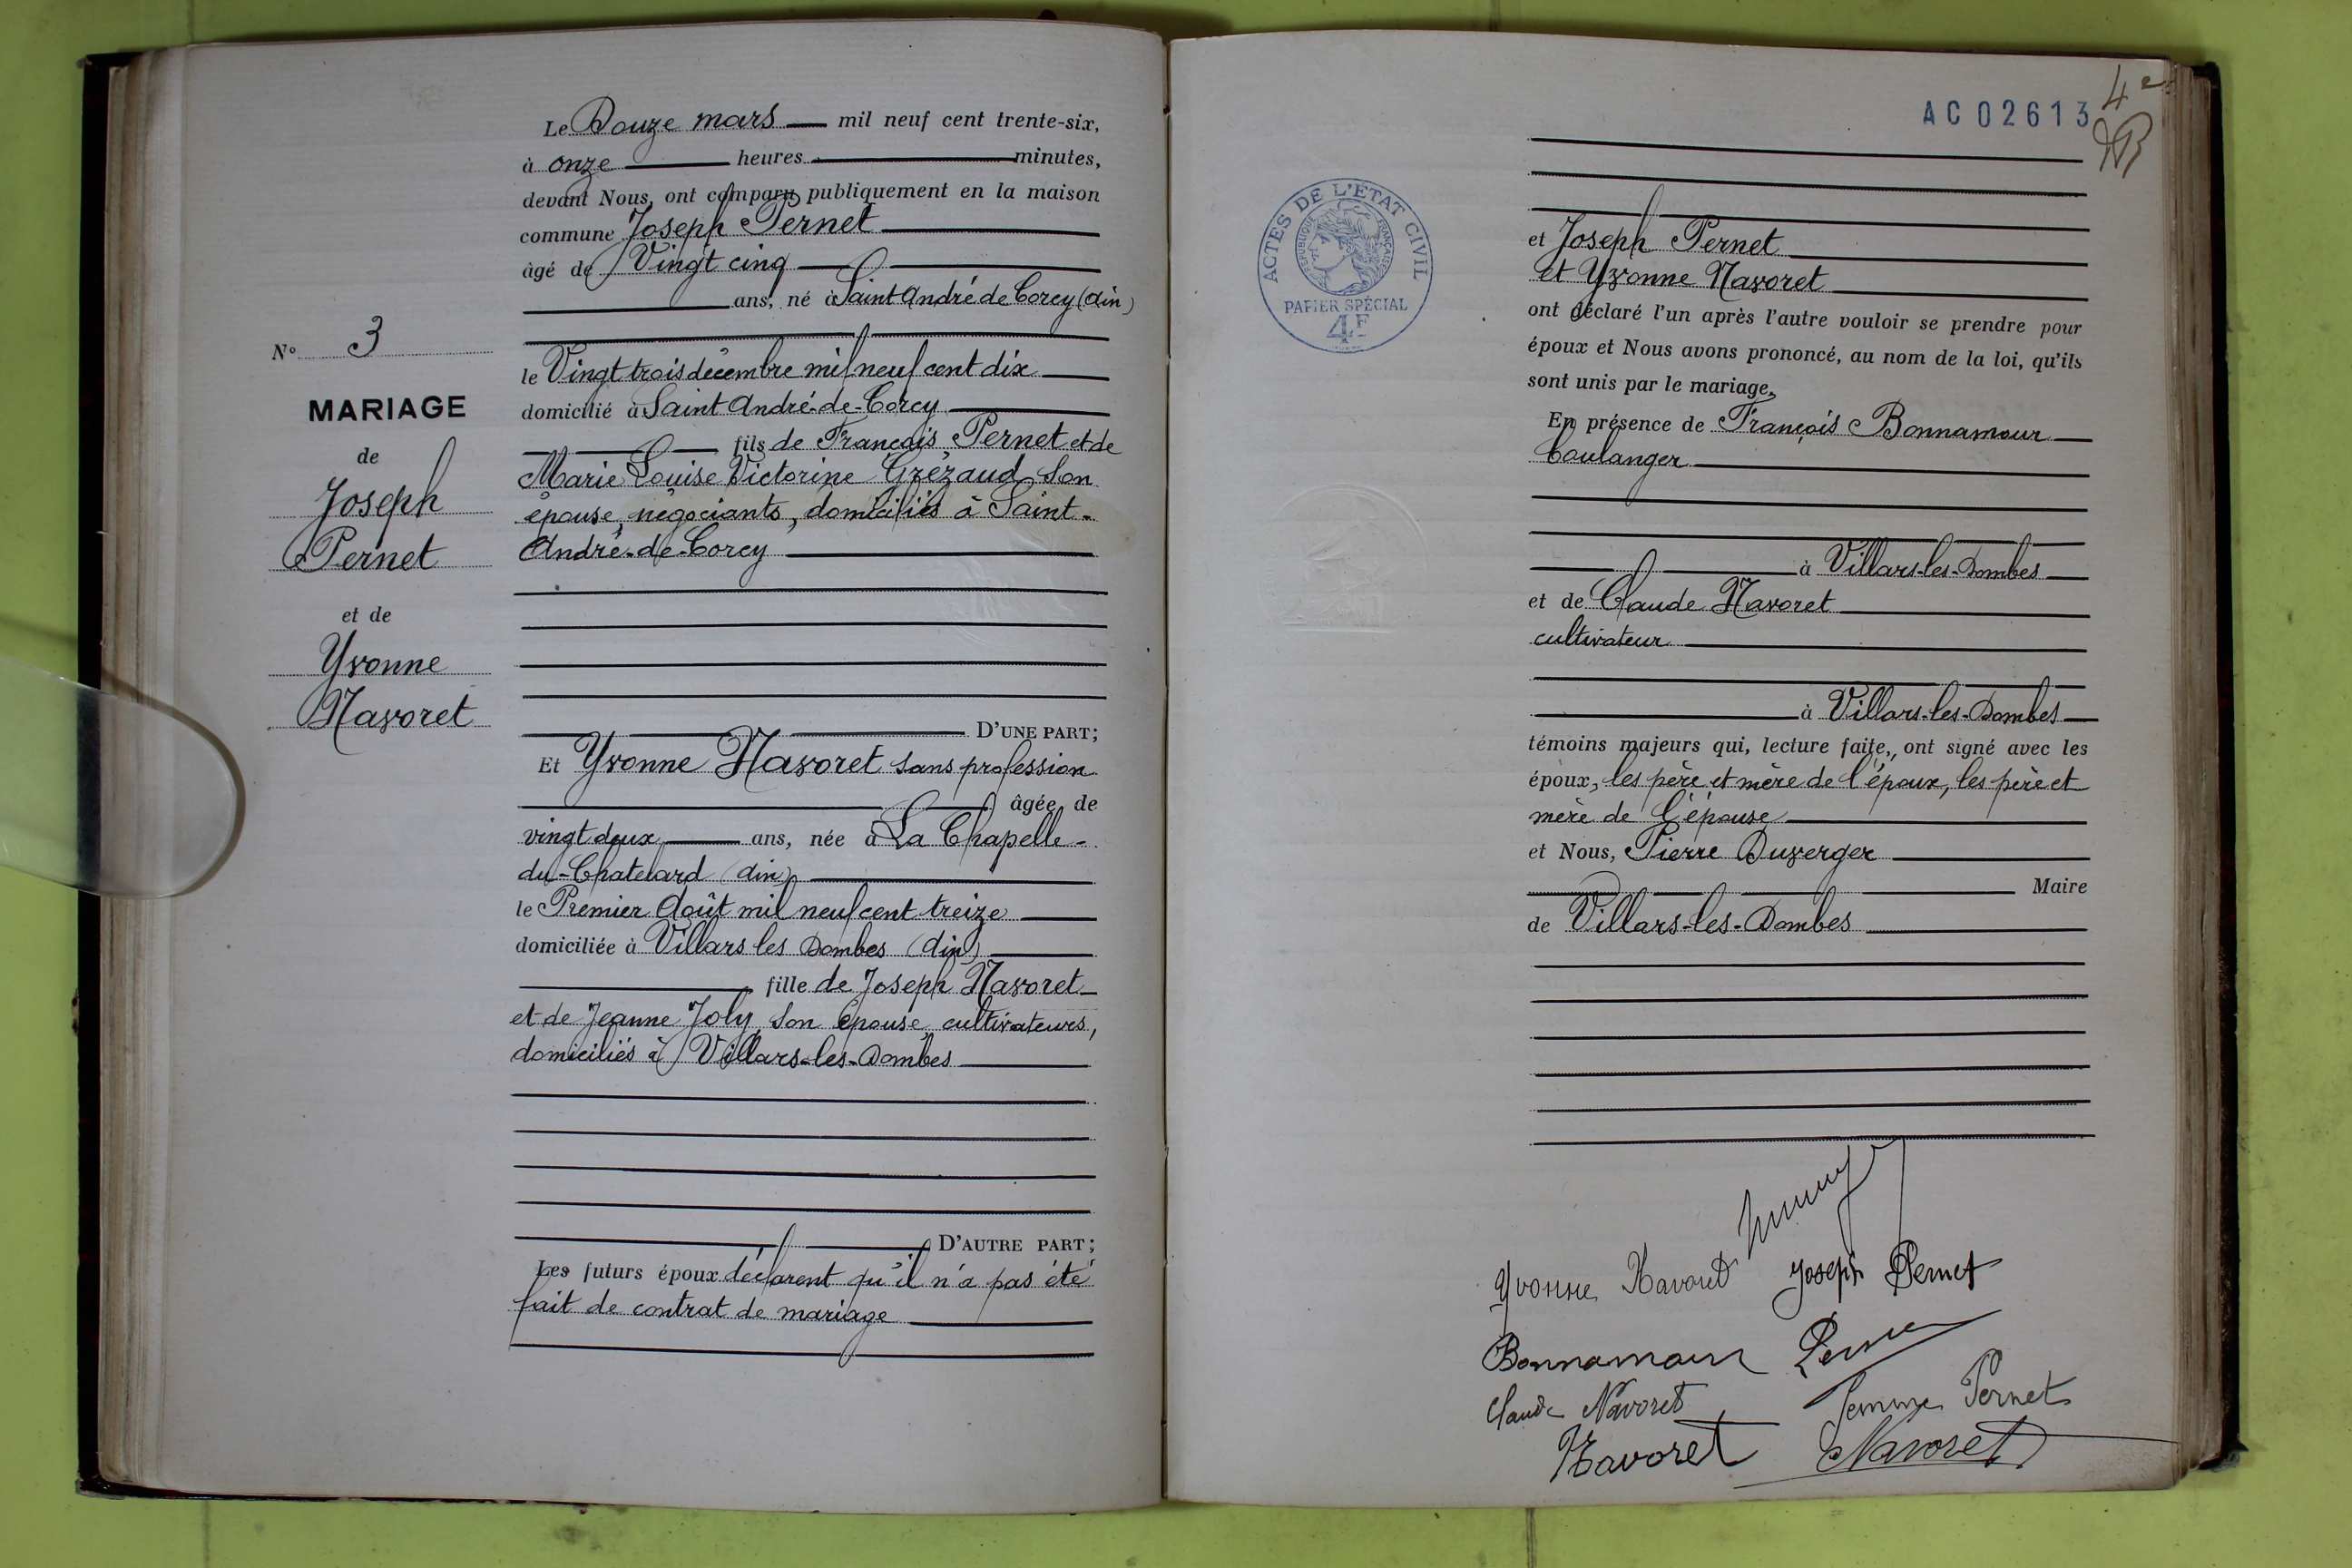 Le Douze mars mil neuf cent trente-six,
à onze heures minutes,
devant Nous, ont comparu publiquement en la maison
commune Joseph Pernet
âgé de Vingt cinq
ans, né à Saint André de Corcy (Ain)
le Vingt trois décembre mil neuf cent dix
domicilié à Saint André-de-Corcy
fils de François Pernet et de
Marie Louise Victorine Grézaud son
épouse, négociants, domiciliés à Saint-
André-de-Corcy
D'UNE PART;
Et Yvonne Navoret sans profession
âgée de
vingt deux ans, née à La Chapelle-
du-Chatelard (Ain)
le Premier Août mil neuf cent treize
domiciliée à Villars les Dombes (Ain)
fille de Joseph Navoret
et de Jeanne Joly, son épouse, cultivateurs,
domiciliés à Villars-les-Dombes
D'AUTRE PART;
Les futurs époux déclarent qu'il n'a pas été
fait de contrat de mariage
N° 3
MARIAGE
de
Joseph
Pernet
et de
Yvonne
Navoret
AC02613
4e
ACTES DE L'ETAT CIVIL
REPUBLIQUE FRANÇAISE
PAPIER SPÉCIAL
4F
et Joseph Pernet
et Yvonne Navoret
ont déclaré l'un après l'autre vouloir se prendre pour
époux et Nous avons prononcé, au nom de la loi, qu'ils
sont unis par le mariage.
En présence de François Bonnamour
boulanger
à Villars-les-Dombes
et de Claude Navoret
cultivateur
à Villars-les-Dombes
témoins majeurs qui, lecture faite, ont signé avec les
époux, les père et mère de l'époux, les père et
mère de l'épouse
et Nous, Pierre Duverger
Maire
de Villars-les-Dombes
Yvonne Navoret Joseph Pernet
Bonnamour Pernet
Claude Navoret Femme Pernet
Navoret Navoret